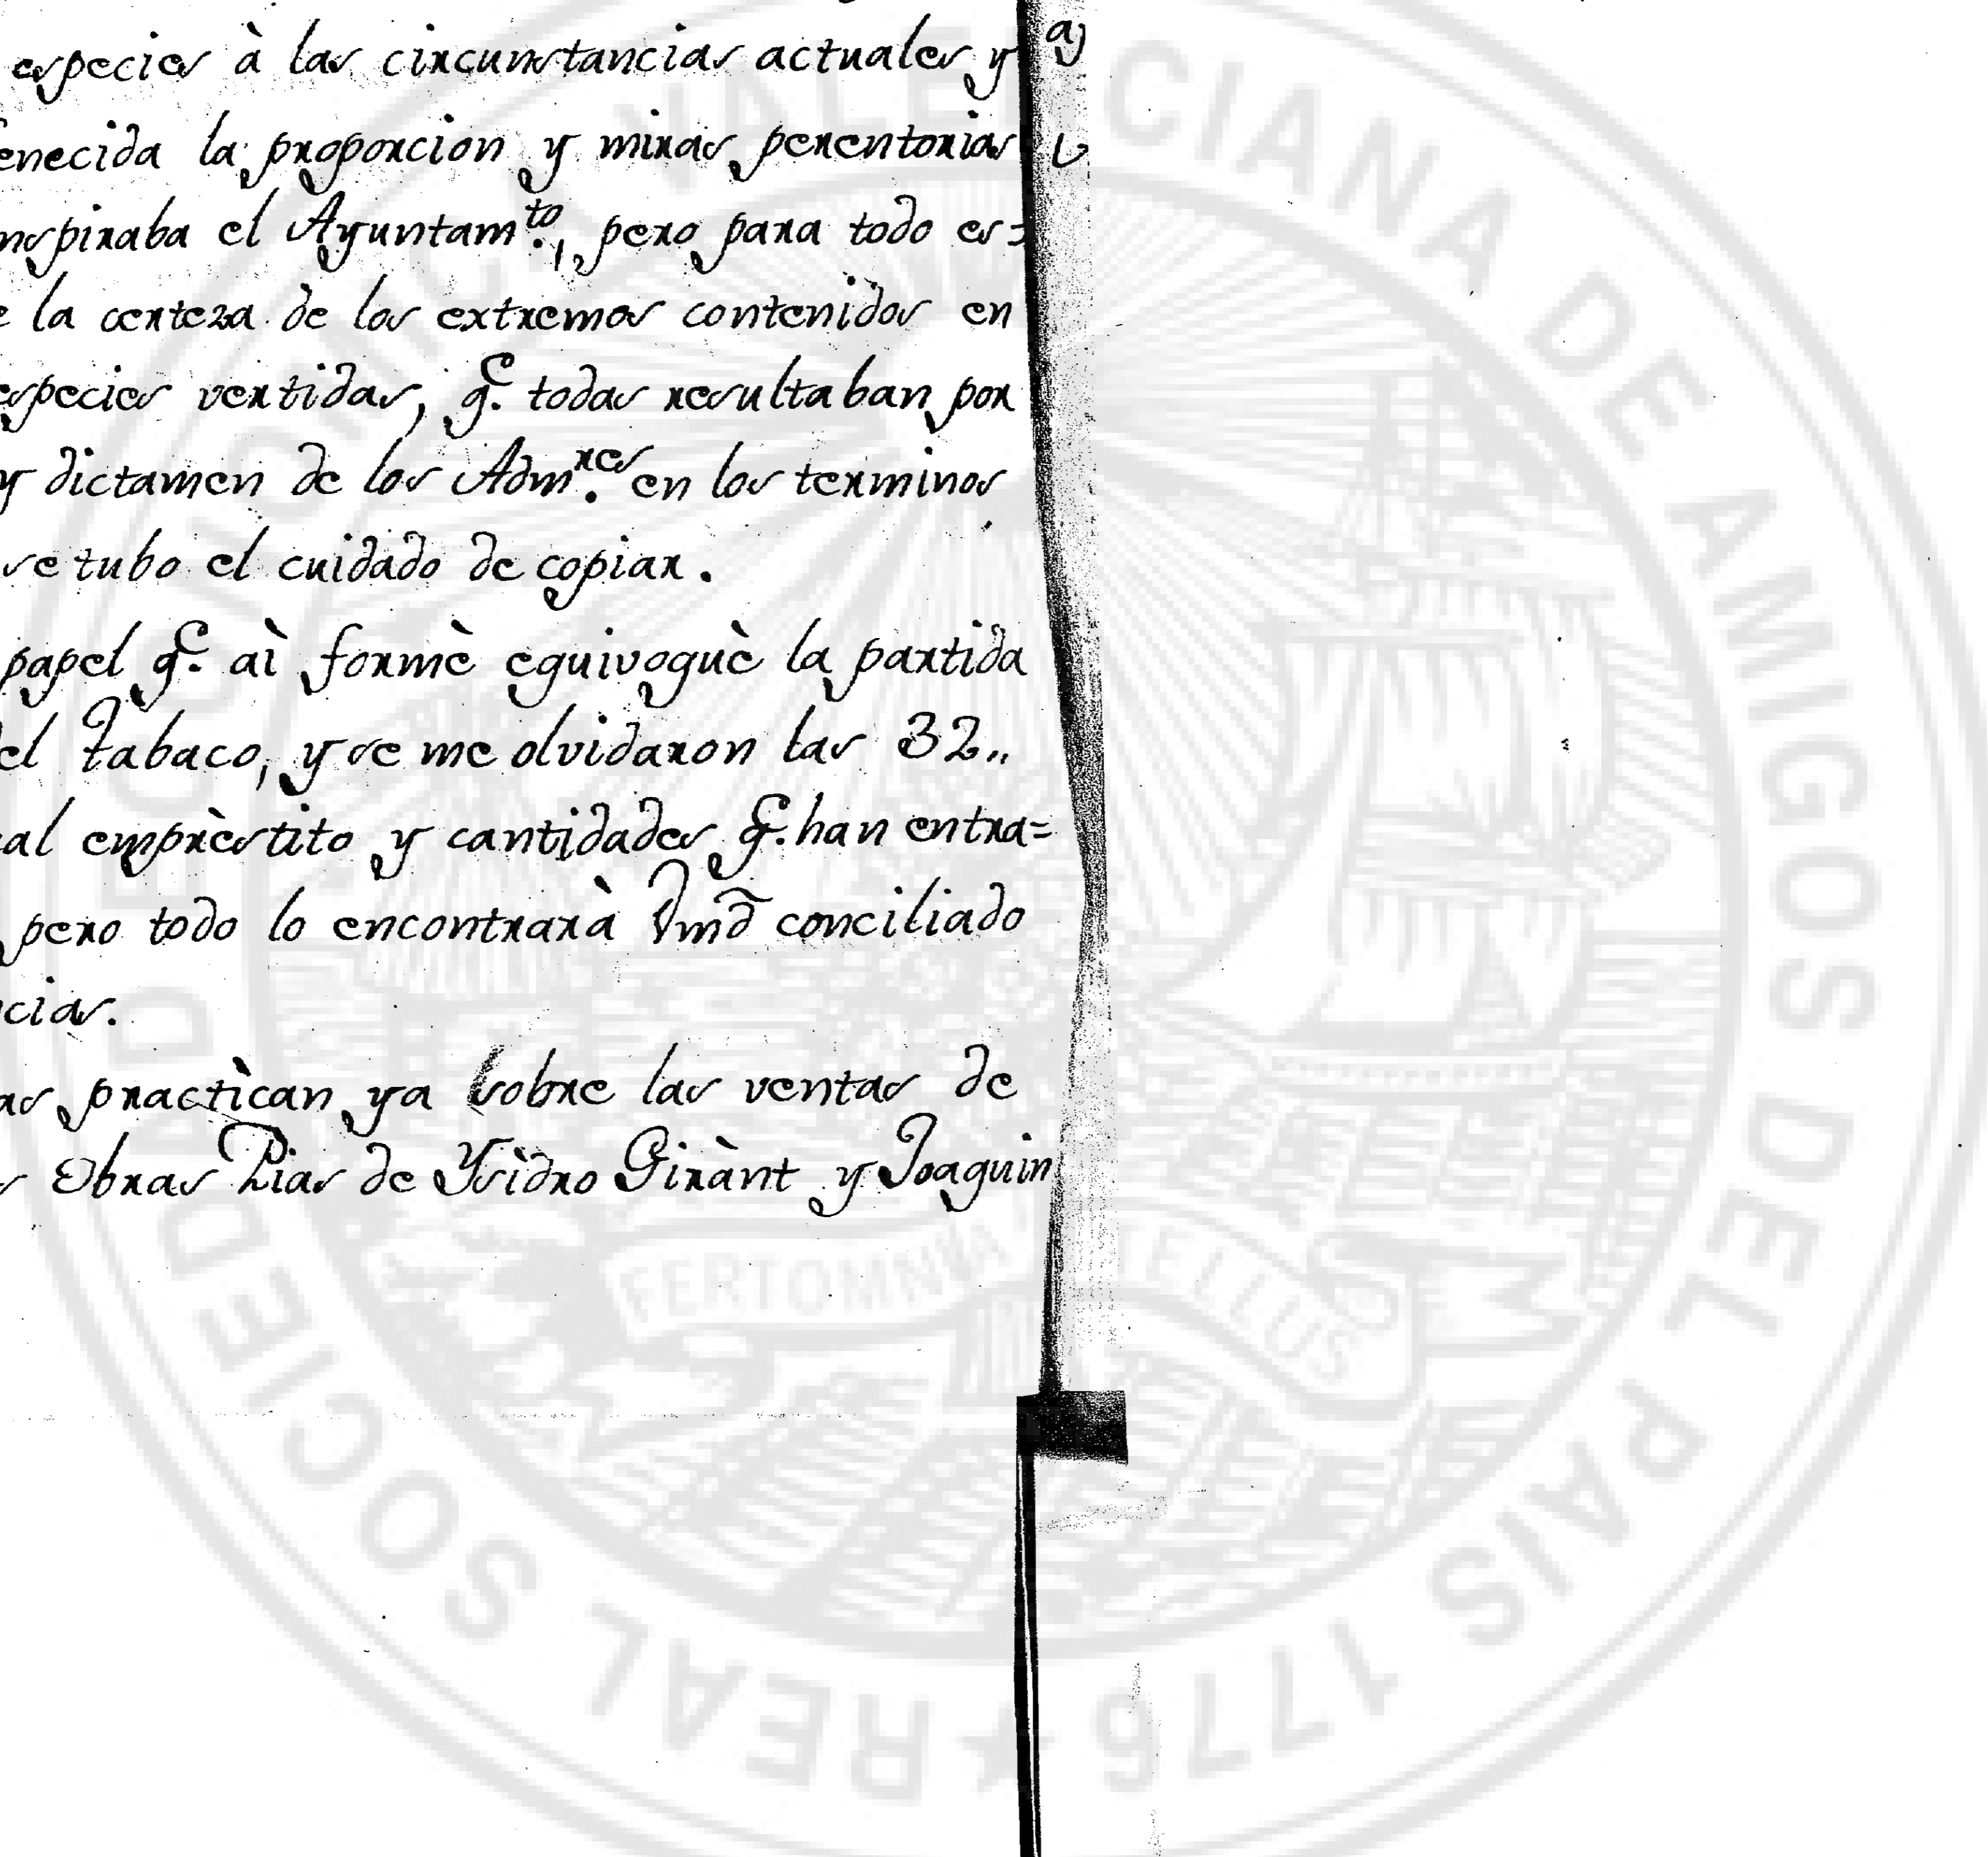 especies à las circunstancias actuales, y
enecida la proporcion y miras perentorias
nspiraba el Ayuntam.to, pero para todo es=
e la certeza de los extremos contenidos en
especies vertidas, q.e todas resultaban por
y dictamen de los Adm.res en los terminos
se tubo el cuidado de copiar.
papel q.e aì formè equivoquè la partida
el tabaco, y se me olvidaron las 32,,
al emprèstito y cantidades q.e han entra=
pero todo lo encontrarà Vmd̃ conciliado
cias.
as practìcan ya sobre las ventas de
Obras Pias de Ysìdro Girànt y Joaquin
REAL SOCIEDAD ECONOMICA VALENCIANA DE AMIGOS DEL PAIS 1776
FERT OMNIA TELLUS